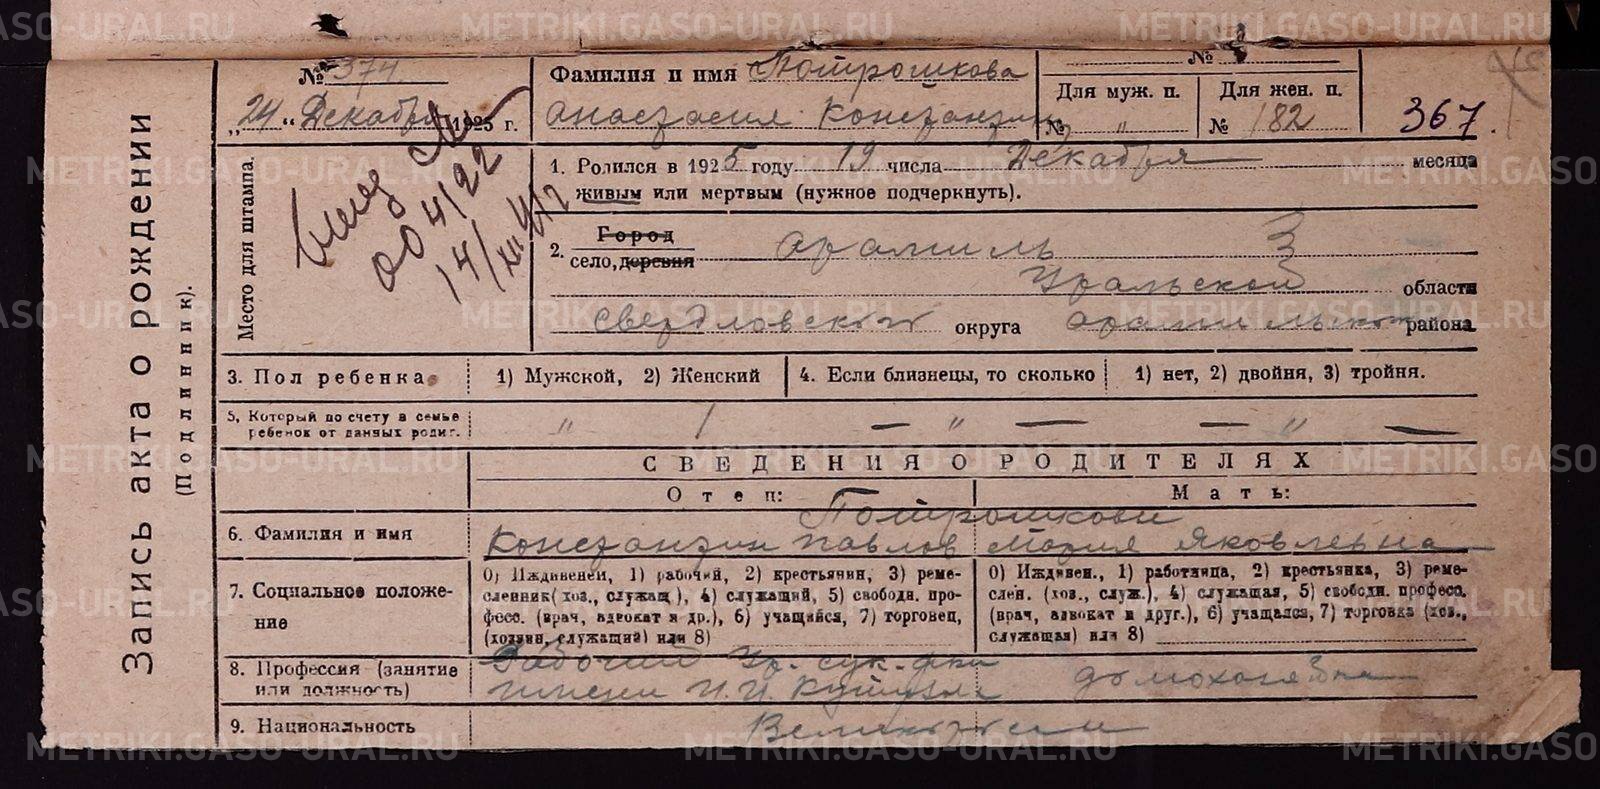 METRIKI.GASO-URAL.RU
Запись акта о рождении
(Подлинник).
№ 374
"24" Декабря 1925 г.
Фамилия и имя Потрошкова
Анастасия Константин
№
Для муж. п.
№ "
Для жен. п.
№ 182
367.
Место для штампа.
1. Родился в 1925 году 19 числа Декабря месяца
живым или мертвым (нужное подчеркнуть).
2. Город
село, деревня Арамиль 3
Уральской области
Свердловского округа Арамильского района
3. Пол ребенка 1) Мужской, 2) Женский
4. Если близнецы, то сколько 1) нет, 2) двойня, 3) тройня.
5. Который по счету в семье
ребенок от данных родит.
" / — " — — " —
СВЕДЕНИЯ О РОДИТЕЛЯХ
Отец: Мать:
Потрошкови
6. Фамилия и имя Констанзин Павлов Мария Яковлевна
7. Социальное положе-
ние
0) Иждивенец, 1) рабочий, 2) крестьянин, 3) реме-
сленник (хоз., служащ.), 4) служащий, 5) свободн. про-
фесс. (врач, адвокат и др.), 6) учащийся, 7) торговец,
(хозяин, служащий) или 8)
0) Иждивен., 1) работница, 2) крестьянка, 3) реме-
слен. (хоз., служ.), 4) служащая, 5) свободн. професс.
(врач, адвокат и друг.), 6) учащаяся, 7) торговка (хоз.,
служащая) или 8)
8. Профессия (занятие
или должность)
Рабочий Ур. сук. ф-ки
имени И. И.
домохозяйка
9. Национальность